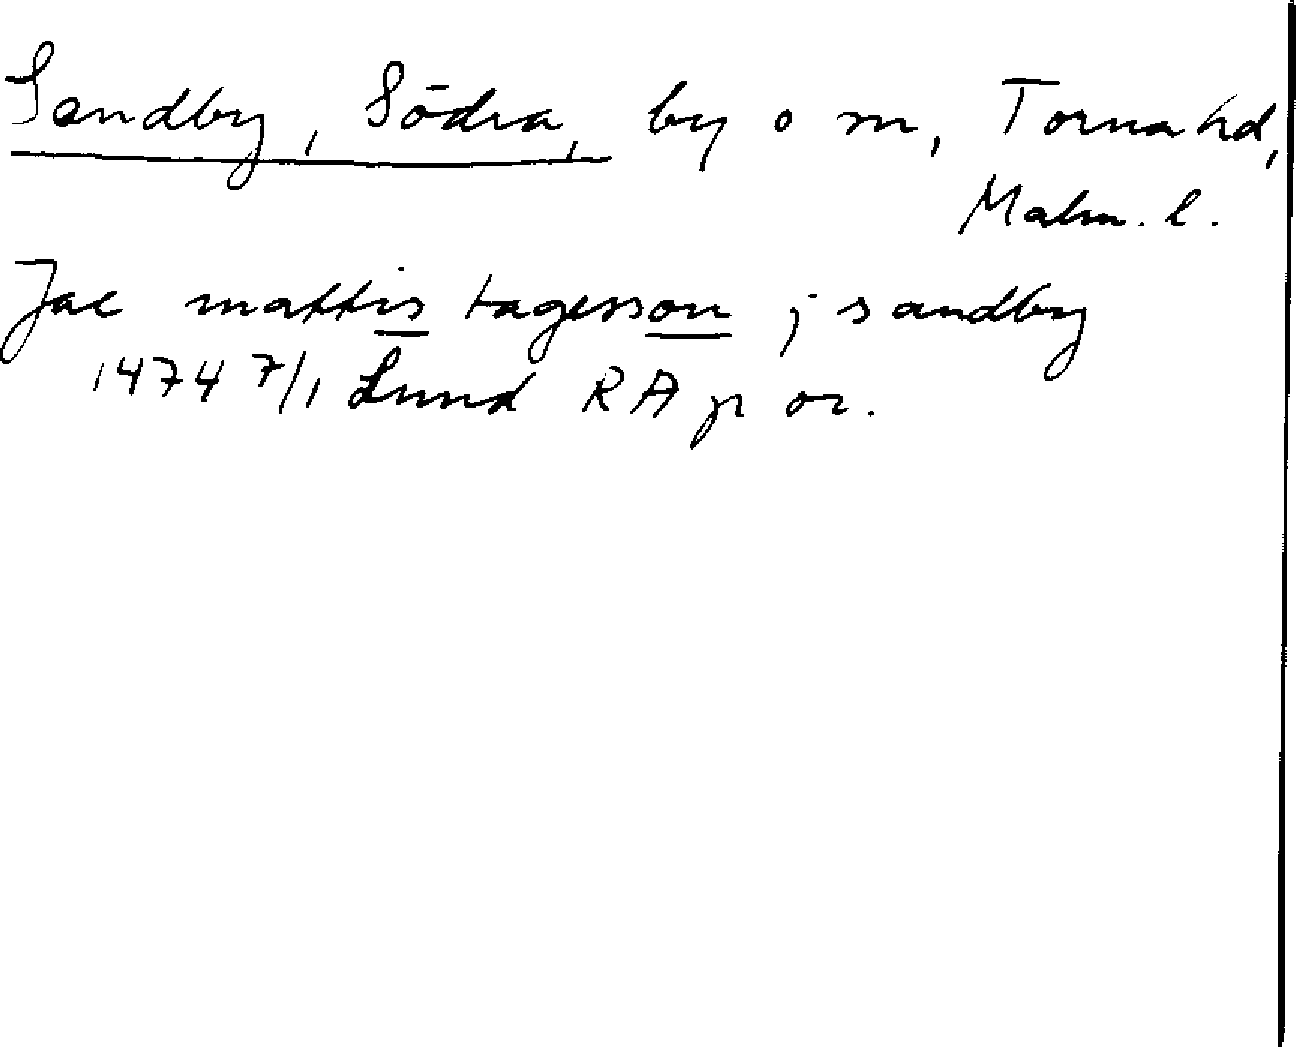 Sandby, Södra, by o sn, Torna hd,
Malm. l.
Jac mattis tagesson j sandby
1474 7/1 Lund RA p or.